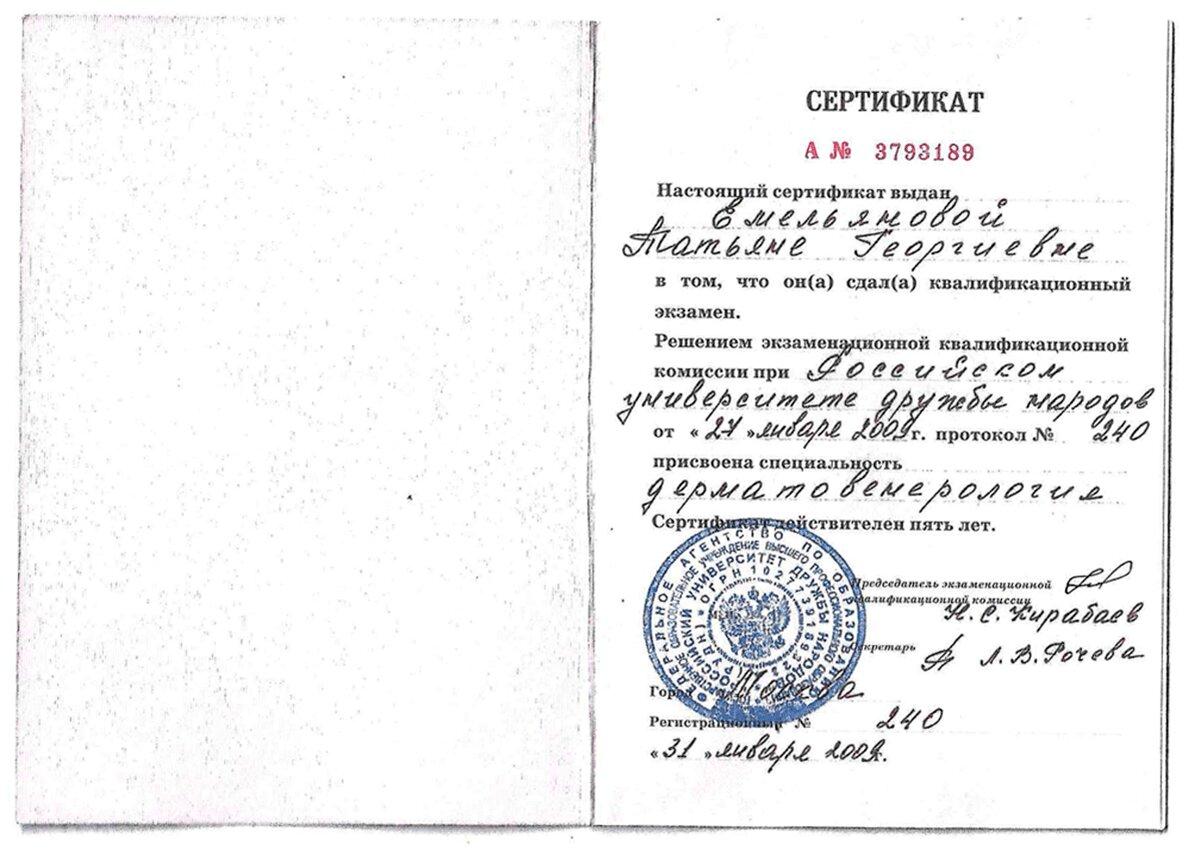 СЕРТИФИКАТ
А № 3793189
Настоящий сертификат выдан
Емельяновой
Татьяне Георгиевне
в том, что он(а) сдал(а) квалификационный
экзамен.
Решением экзаменационной квалификационной
комиссии при Российском
университете дружбы народов
от « 27 » января 2009г. протокол № 240
присвоена специальность
дерматовенерология
Сертификат действителен пять лет.
ФЕДЕРАЛЬНОЕ АГЕНТСТВО ПО ОБРАЗОВАНИЮ
УЧРЕЖДЕНИЕ ВЫСШЕГО ПРОФЕССИОНАЛЬНОГО
РОССИЙСКИЙ УНИВЕРСИТЕТ ДРУЖБЫ НАРОДОВ
Председатель экзаменационной
квалификационной комиссии
Н. С. Кирабаев
Секретарь Л. В. Рочева
Город Москва
Регистрационный № 240
« 31 » января 2009г.